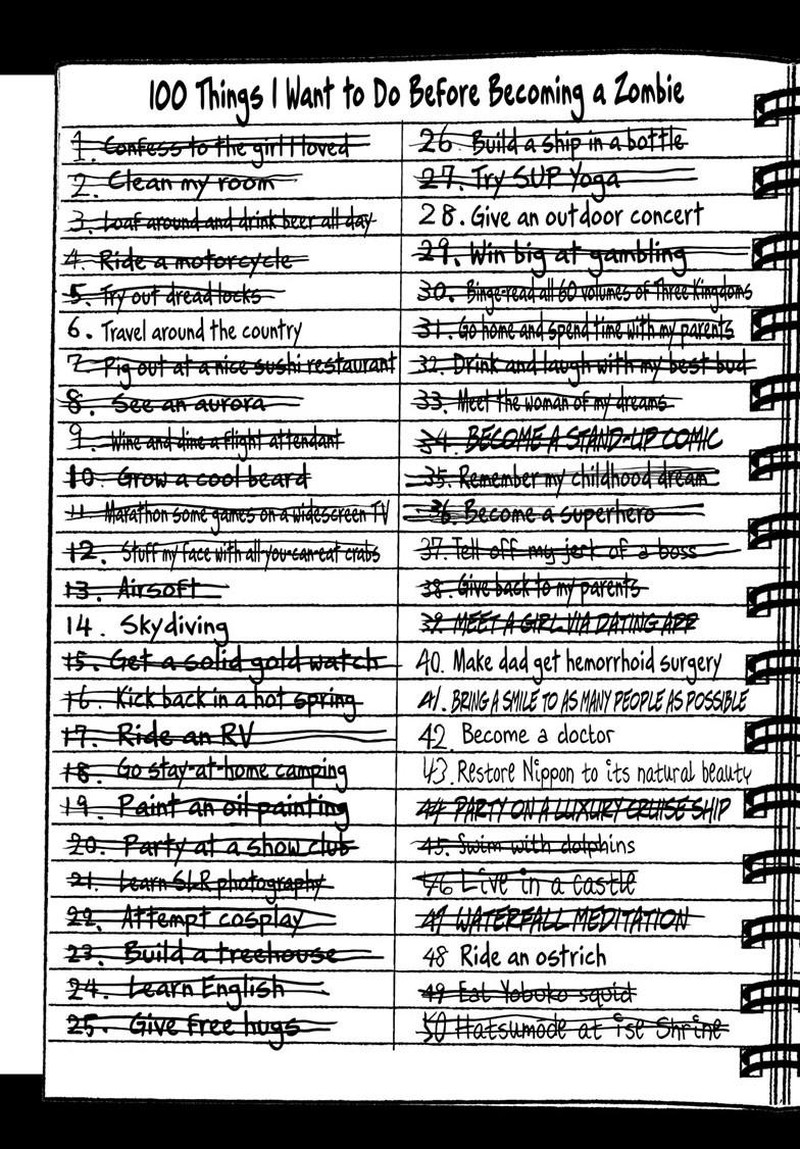 100 Things I Want to Do Before Becoming a Zombie
1. Confess to the girl I loved
2. Clean my room
3. Loaf around and drink beer all day
4. Ride a motorcycle
5. Try out dreadlocks
6. Travel around the country
7. Pig out at a nice sushi restaurant
8. See an aurora
9. Wine and dine a flight attendant
10. Grow a cool beard
11. Marathon some games on a widescreen TV
12. Stuff my face with all-you-can-eat crabs
13. Airsoft
14. Skydiving
15. Get a solid gold watch
16. Kick back in a hot spring
17. Ride an RV
18. Go stay-at-home camping
19. Paint an oil painting
20. Party at a show club
21. Learn SLR photography
22. Attempt cosplay
23. Build a treehouse
24. Learn English
25. Give free hugs
26. Build a ship in a bottle
27. Try SUP Yoga
28. Give an outdoor concert
29. Win big at gambling
30. Binge-read all 60 volumes of Three Kingdoms
31. Go home and spend time with my parents
32. Drink and laugh with my best bud
33. Meet the woman of my dreams
34. BECOME A STAND-UP COMIC
35. Remember my childhood dream
36. Become a superhero
37. Tell off my jerk of a boss
38. Give back to my parents
39. MEET A GIRL VIA DATING APP
40. Make dad get hemorrhoid surgery
41. BRING A SMILE TO AS MANY PEOPLE AS POSSIBLE
42. Become a doctor
43. Restore Nippon to its natural beauty
44 PARTY ON A LUXURY CRUISE SHIP
45. Swim with dolphins
46 Live in a castle
47 WATERFALL MEDITATION
48 Ride an ostrich
49 Eat Yobuko squid
50 Hatsumode at ise Shrine